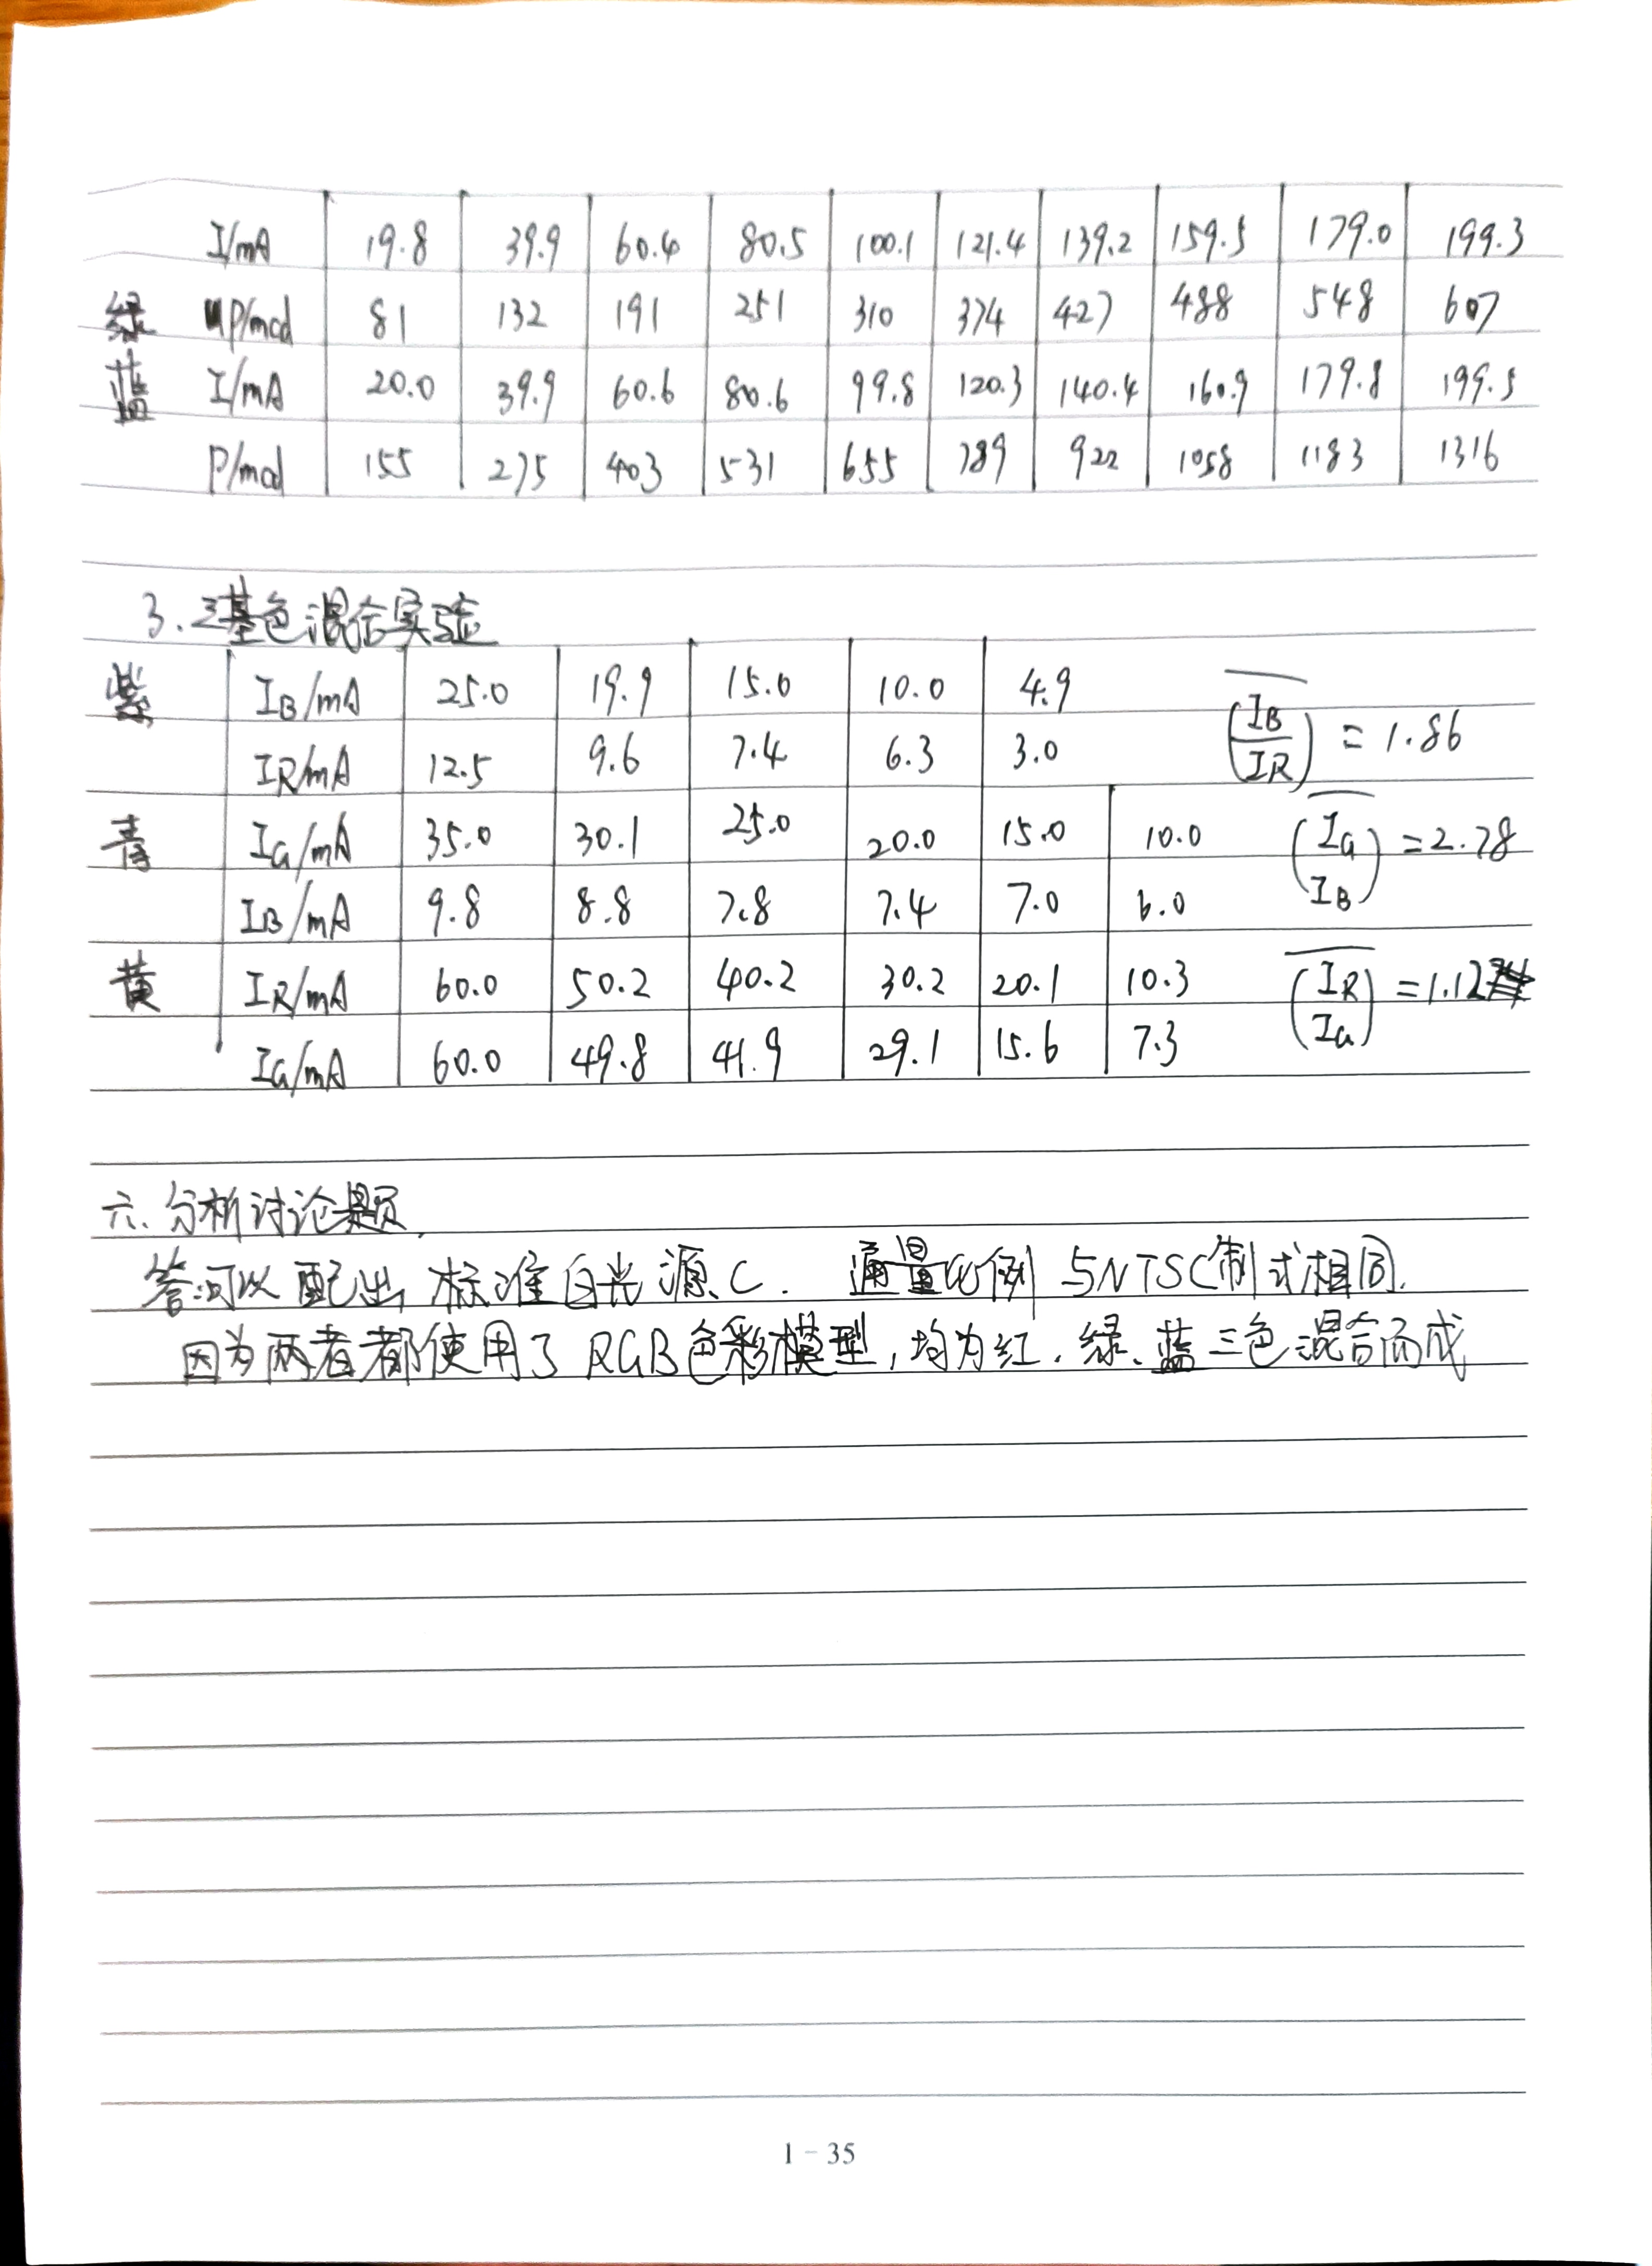 I/mA 19.8 39.9 60.4 80.5 100.1 121.4 139.2 159.5 179.0 199.3
绿 P/mcd 81 132 191 251 310 374 427 488 548 607
蓝 I/mA 20.0 39.9 60.6 80.6 99.8 120.3 140.4 160.9 179.8 199.5
P/mcd 155 275 403 531 655 789 922 1058 1183 1316
3.三基色混合实验
紫 IB/mA 25.0 19.9 15.0 10.0 4.9
IR/mA 12.5 9.6 7.4 6.3 3.0
(IB/IR) = 1.86
青 IG/mA 35.0 30.1 25.0 20.0 15.0 10.0
IB/mA 9.8 8.8 7.8 7.4 7.0 6.0
(IG/IB) = 2.78
黄 IR/mA 60.0 50.2 40.2 30.2 20.1 10.3
IG/mA 60.0 49.8 41.9 29.1 15.6 7.3
(IR/IG) = 1.12
六、分析讨论题.
答:可以配出标准白光源C. 通量比例与NTSC制式相同.
因为两者都使用了RGB色彩模型,均为红、绿、蓝三色混合而成
1-35